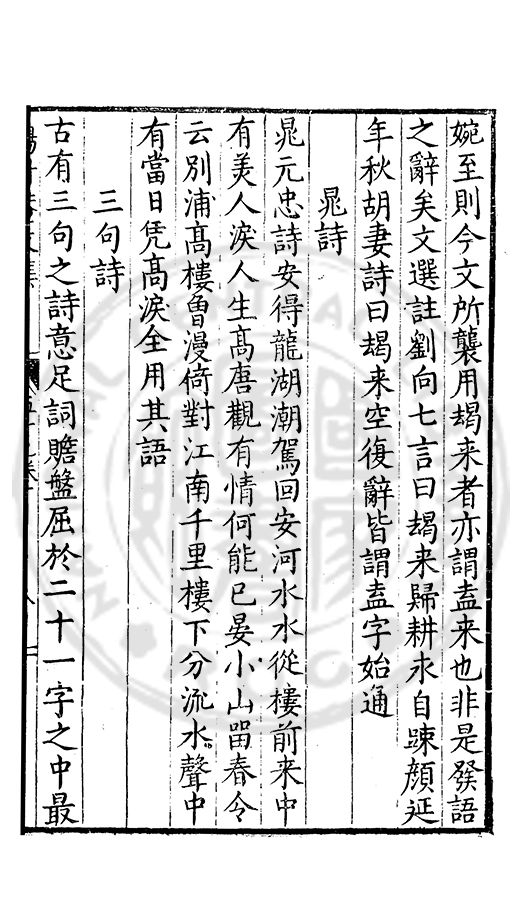 婉至則今文所襲用朅来者亦謂盍来也非是發語
之辭矣文選註劉向七言曰朅来歸耕永自踈顔延
年秋胡妻詩曰朅来空復辭皆謂盍字始通
晁詩
晁元忠詩安得龍湖潮駕回安河水水從樓前来中
有美人淚人生髙唐觀有情何能已晏小山留春令
云别浦髙樓曽漫倚對江南千里樓下分流水聲中
有當日凭髙淚全用其語
三句詩
古有三句之詩意足詞贍盤屈於二十一字之中最